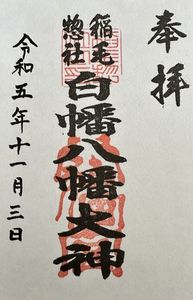 奉拝
稲毛
惣社
白幡八幡大神
令和五年十一月三日